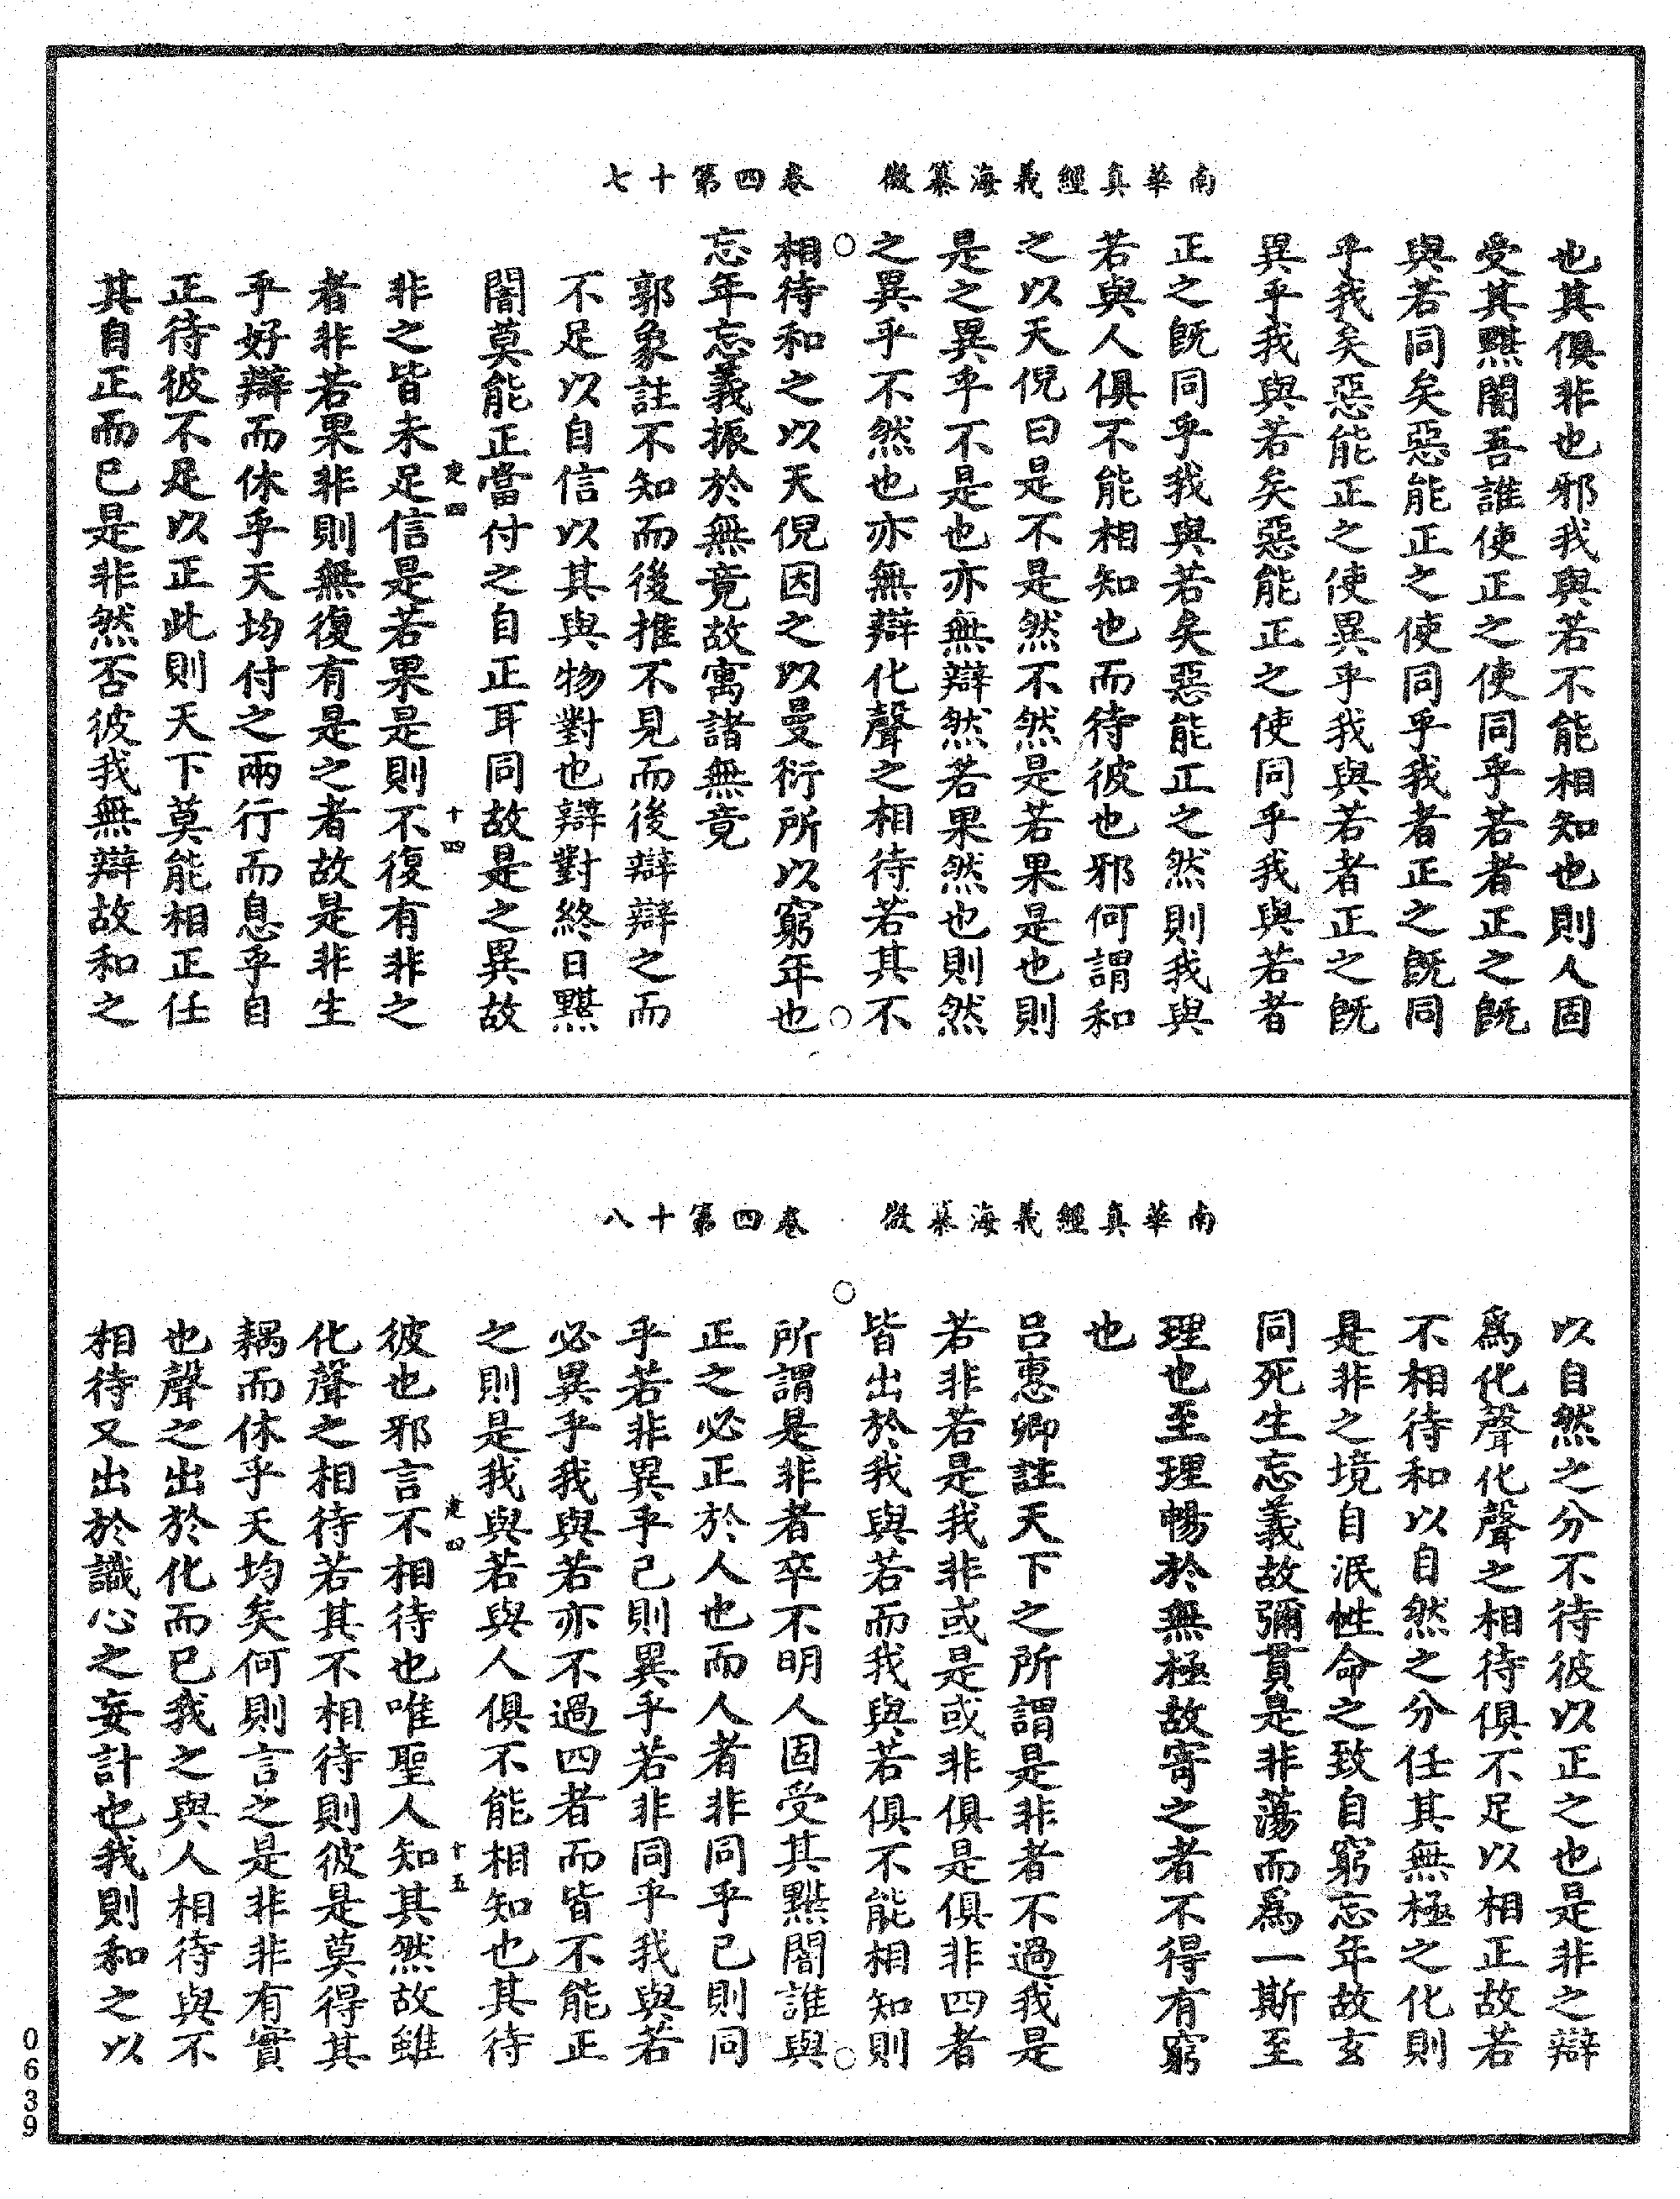 南華真經義海纂微　卷四第十七
也其俱非也邪我與若不能相知也則人固
受其黮闇吾誰使正之使同乎若者正之既
與若同矣惡能正之使同乎我者正之既同
乎我矣惡能正之使異乎我與若者正之既
異乎我與若矣惡能正之使同乎我與若者
正之既同乎我與若矣惡能正之然則我與
若與人俱不能相知也而待彼也邪何謂和
之以天倪曰是不是然不然是若果是也則
是之異乎不是也亦無辯然若果然也則然
之異乎不然也亦無辯化聲之相待若其不
相待和之以天倪因之以曼衍所以窮年也
忘年忘義振於無竟故寓諸無竟
郭象註不知而後推不見而後辯辯之而
不足以自信以其與物對也辯對終日黮
闇莫能正當付之自正耳同故是之異故
非之皆未足信是若果是則不復有非之
者非若果非則無復有是之者故是非生
乎好辯而休乎天均付之兩行而息乎自
正待彼不足以正此則天下莫能相正任
其自正而已是非然否彼我無辯故和之
四
十四
南華真經義海纂微　卷四第十八
以自然之分不待彼以正之也是非之辯
爲化聲化聲之相待俱不足以相正故若
不相待和以自然之分任其無極之化則
是非之境自泯性命之致自窮忘年故玄
同死生忘義故彌貫是非蕩而爲一斯至
理也至理暢於無極故寄之者不得有窮
也
呂惠卿註天下之所謂是非者不過我是
若非若是我非或是或非俱是俱非四者
皆出於我與若而我與若俱不能相知則
所謂是非者卒不明人固受其黮闇誰與
正之必正於人也而人者非同乎己則同
乎若非異乎己則異乎若非同乎我與若
必異乎我與若亦不過四者而皆不能正
之則是我與若與人俱不能相知也其待
彼也邪言不相待也唯聖人知其然故雖
化聲之相待若其不相待則彼是莫得其
耦而休乎天均矣何則言之是非非有實
也聲之出於化而已我之與人相待與不
相待又出於識心之妄計也我則和之以
四
十五
0639